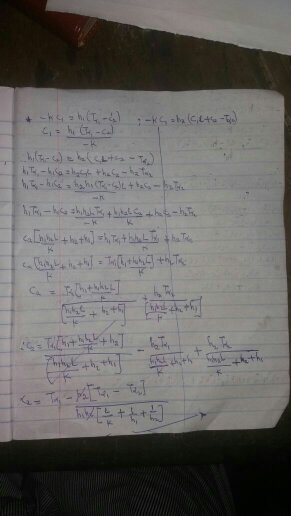 * -K C1 = h1 (T∞1 - C2) ; -K C1 = h2 (C1L + C2 - T∞2)
C1 = h1 (T∞1 - C2) / -K
h1 (T∞1 - C2) = h2 (C1L + C2 - T∞2)
h1 T∞1 - h1C2 = h2C1L + h2C2 - h2 T∞2
h1 T∞1 - h1C2 = h2 h1 (T∞1 - C2) L / -K + h2 C2 - h2 T∞2
h1 T∞1 - h1C2 = h1h2L T∞1 / -K + h1h2L C2 / K + h2 C2 - h2 T∞2
C2 [h1h2L / K + h2 + h1] = h1 T∞1 + h1h2L T∞1 / K + h2 T∞2
C2 [h1h2L / K + h2 + h1] = T∞1 [h1 + h1h2L / K] + h2 T∞2
C2 = T∞1 [h1 + h1h2L / K] / [h1h2L / K + h2 + h1] + h2 T∞2 / [h1h2L / K + h2 + h1]
∴ C2 = T∞1 [h1 + h1h2L / K + h2] / [h1h2L / K + h2 + h1] - h2 T∞1 / [h1h2L / K + h2 + h1] + h2 T∞2 / [h1h2L / K + h2 + h1]
C2 = T∞1 - h2 [T∞1 - T∞2] / h1h2 [L / K + 1 / h1 + 1 / h2]